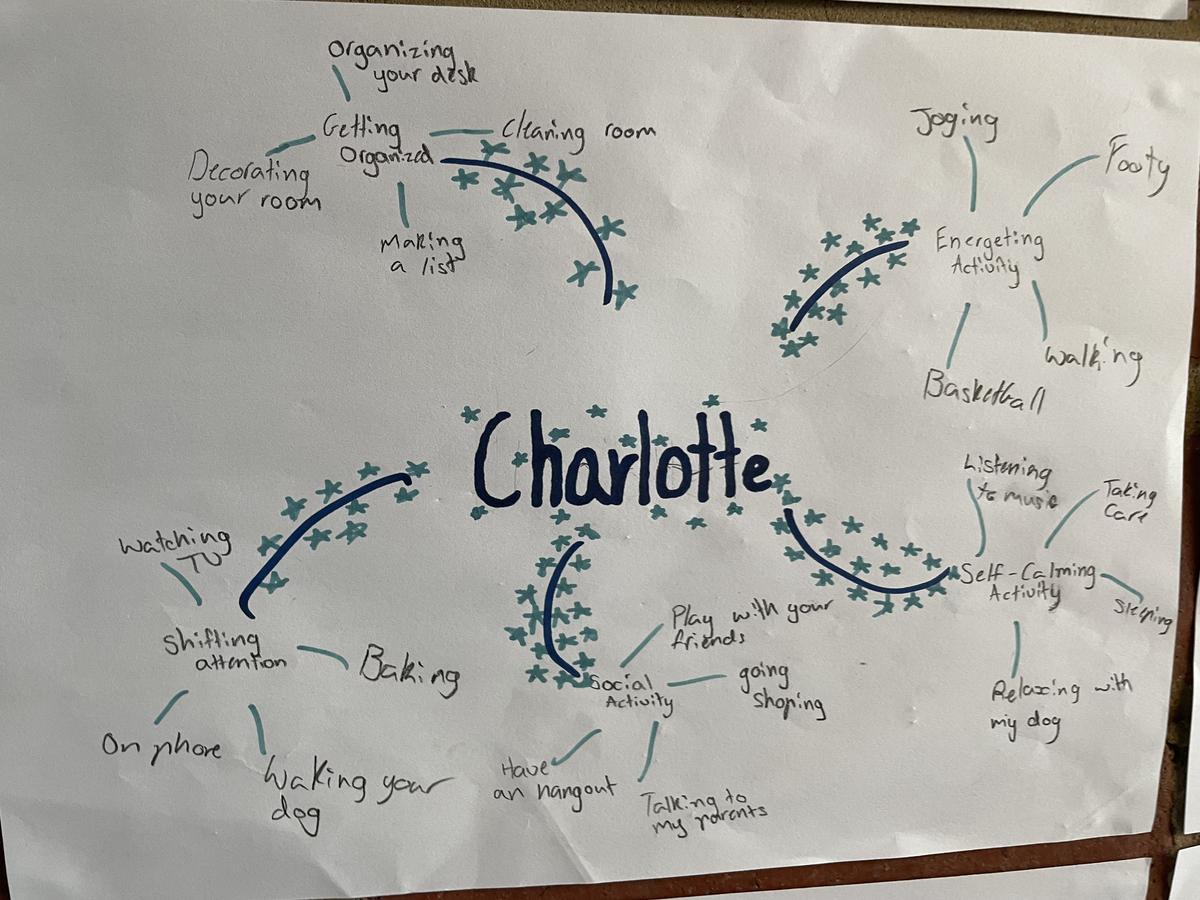 Organizing
your desk
Getting
Organized
Cleaning room
Decorating
your room
Making
a list
Joging
Footy
Energeting
Activity
Walking
Basketball
Charlotte
Listening
to music
Taking
Care
Self-Calming
Activity
Sleeping
Relaxing with
my dog
Watching
TV
Shifting
attention
Baking
On phone
Waking your
dog
Social
Activity
Play with your
friends
going
shoping
Have
an hangout
Talking to
my parents